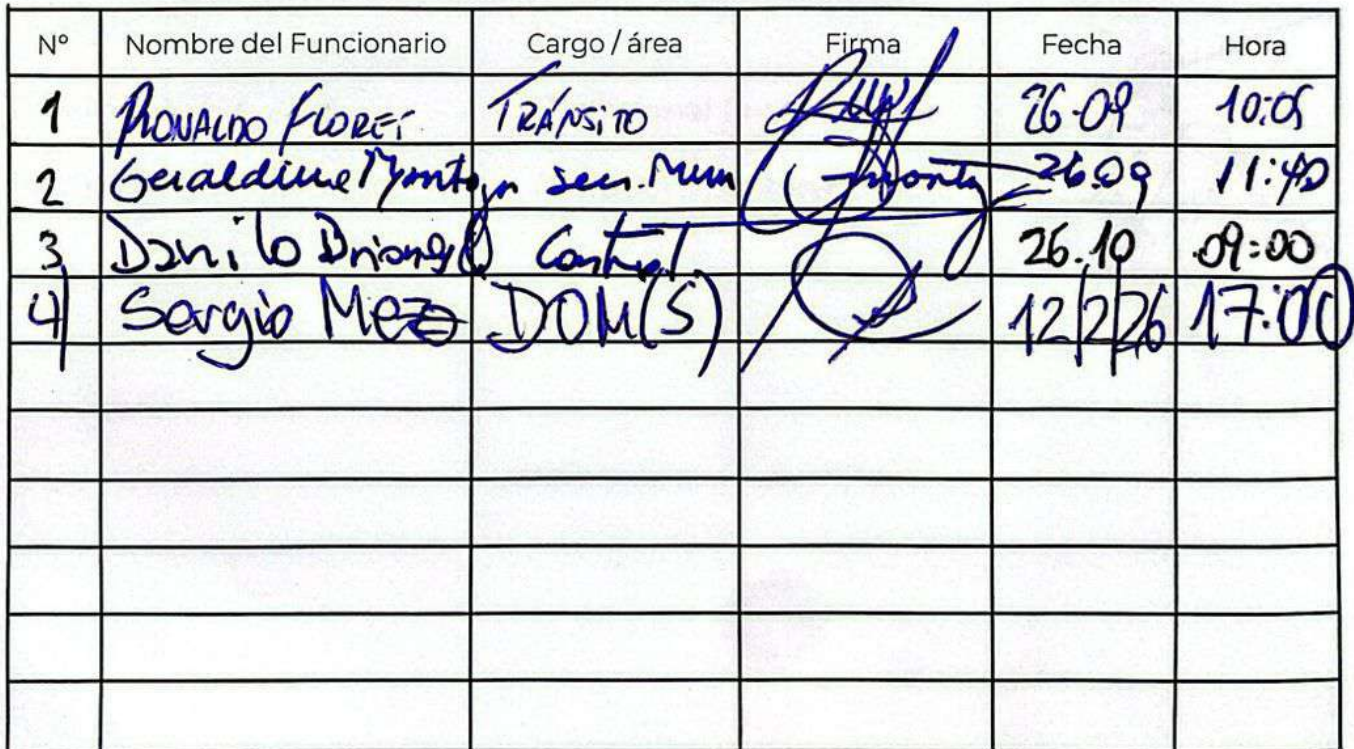 Nº Nombre del Funcionario Cargo / área Firma Fecha Hora
1 RONALDO FLORES TRÁNSITO 26.09 10:05
2 Geraldine Montoya Sec. Mun 26.09 11:40
3 Danilo Control 26.10 09:00
4) Sergio Meza DOM(S) 12/2/26 17:00